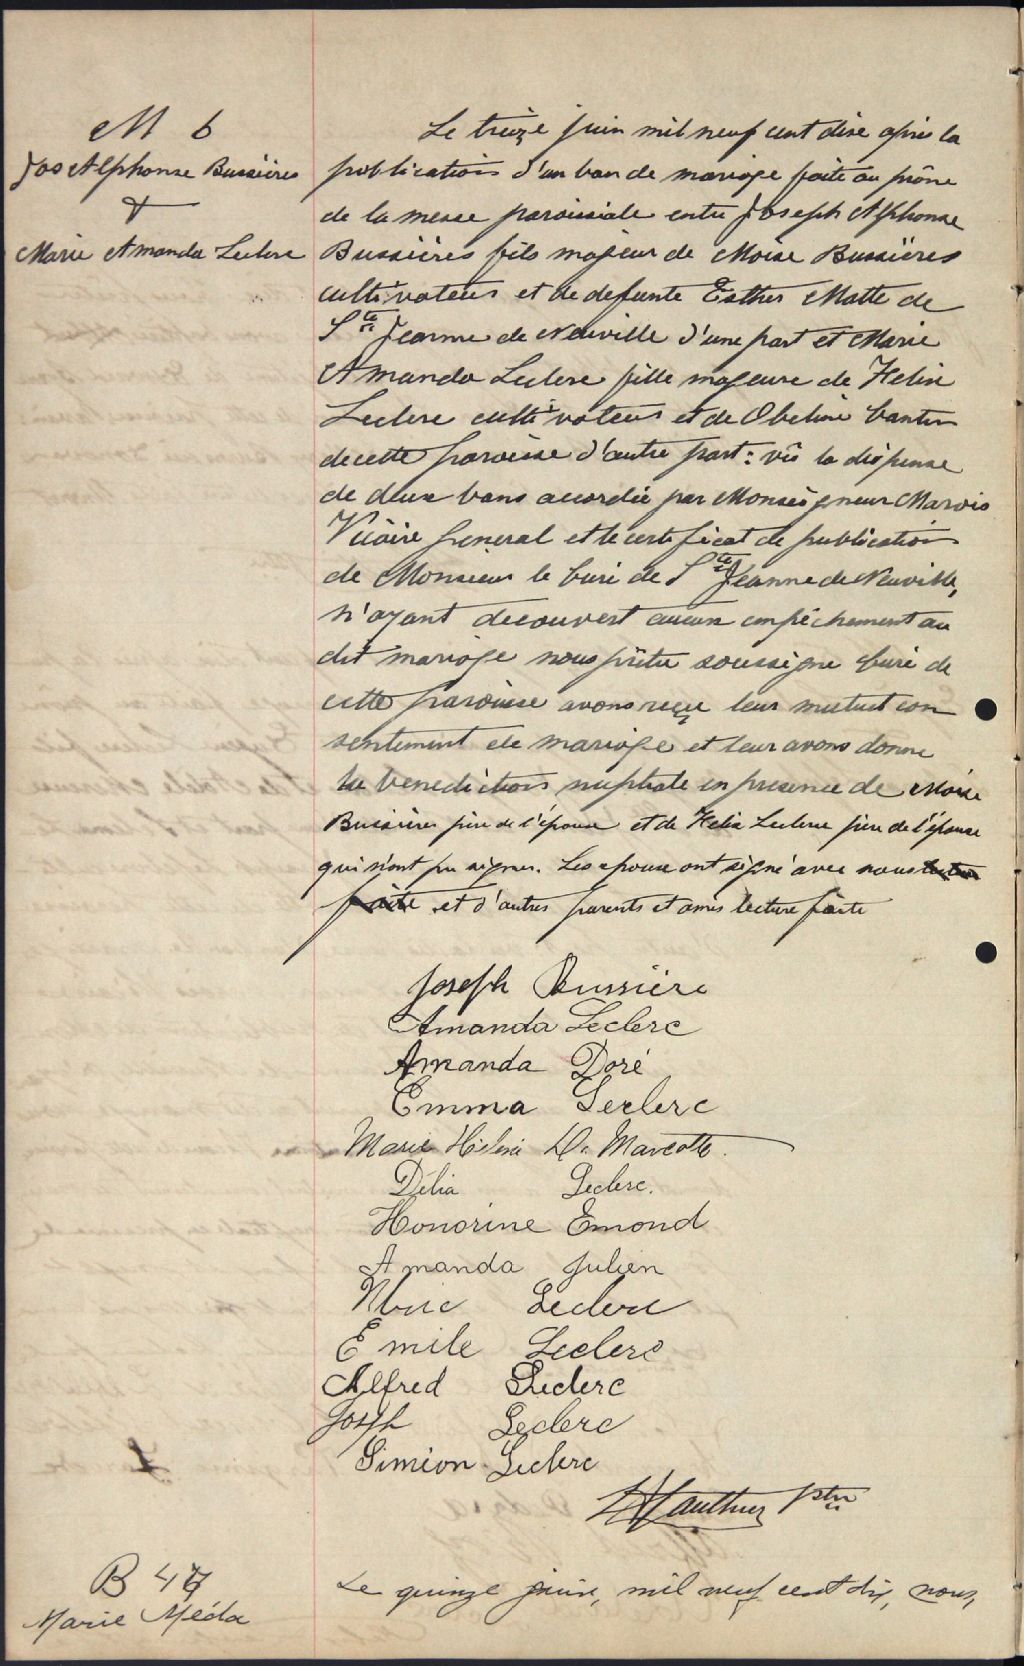 M 6
Jos Alphonse Bussières
&
Marie Amanda Leclerc
Le treize juin mil neuf cent dix après la
publication d'un ban de mariage faite au prône
de la messe paroissiale entre Joseph Alphonse
Bussières fils majeur de Moïse Bussières
cultivateur et de defunte Esther Matte de
Ste Jeanne de Neuville d'une part et Marie
Amanda Leclerc fille majeure de Helie
Leclerc cultivateur et de Obeline Cantin
de cette paroisse d'autre part: vû la dispense
de deux bans accordée par Monseigneur Marois
Vicaire général et le certificat de publication
de Monsieur le Curé de Ste Jeanne de Neuville,
n'ayant decouvert aucun empêchement au
dit mariage nous prêtre soussigné curé de
cette paroisse avons reçu leur mutuel con
sentement de mariage et leur avons donné
la benediction nuptiale en presence de Moïse
Bussières père de l'époux et de Helie Leclerc père de l'épouse
qui n'ont pu signer. Les epoux ont signé avec nous lecture
faite et d'autres parents et amis lecture faite
Joseph Bussière
Amanda Leclerc
Amanda Doré
Emma Leclerc
Marie Hélène D. Marcotte.
Délia Leclerc.
Honorine Emond
Amanda Julien
Leclerc
Emile Leclerc
Alfred Leclerc
Joseph Leclerc
Siméon Leclerc
Gauthier Ptre
B 47
Marie Méda
Le quinze juin, mil neuf cent dix, nous,